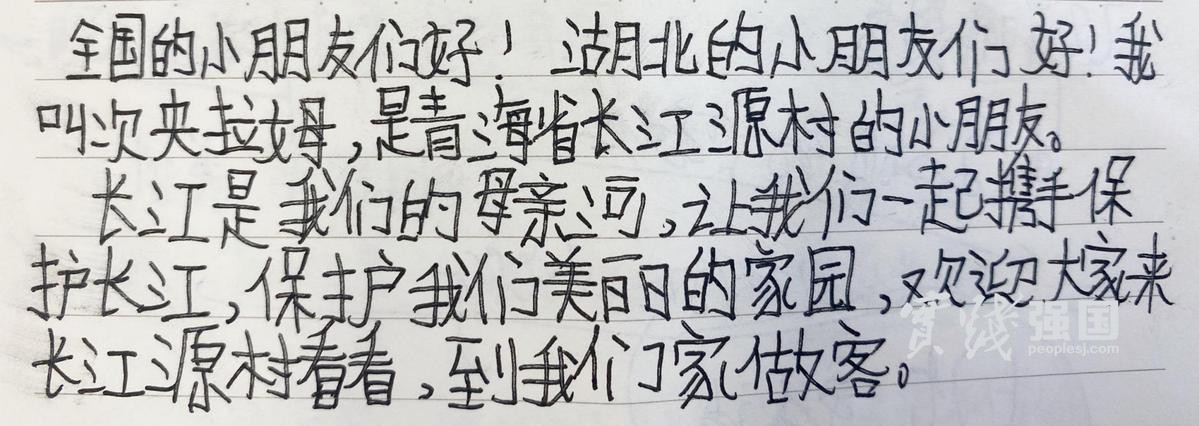 全国的小朋友们好！湖北的小朋友们好！我
叫次央拉姆，是青海省长江源村的小朋友。
长江是我们的母亲河，让我们一起携手保
护长江，保护我们美丽的家园，欢迎大家来
长江源村看看，到我们家做客。
实践强国
peoplesj.com